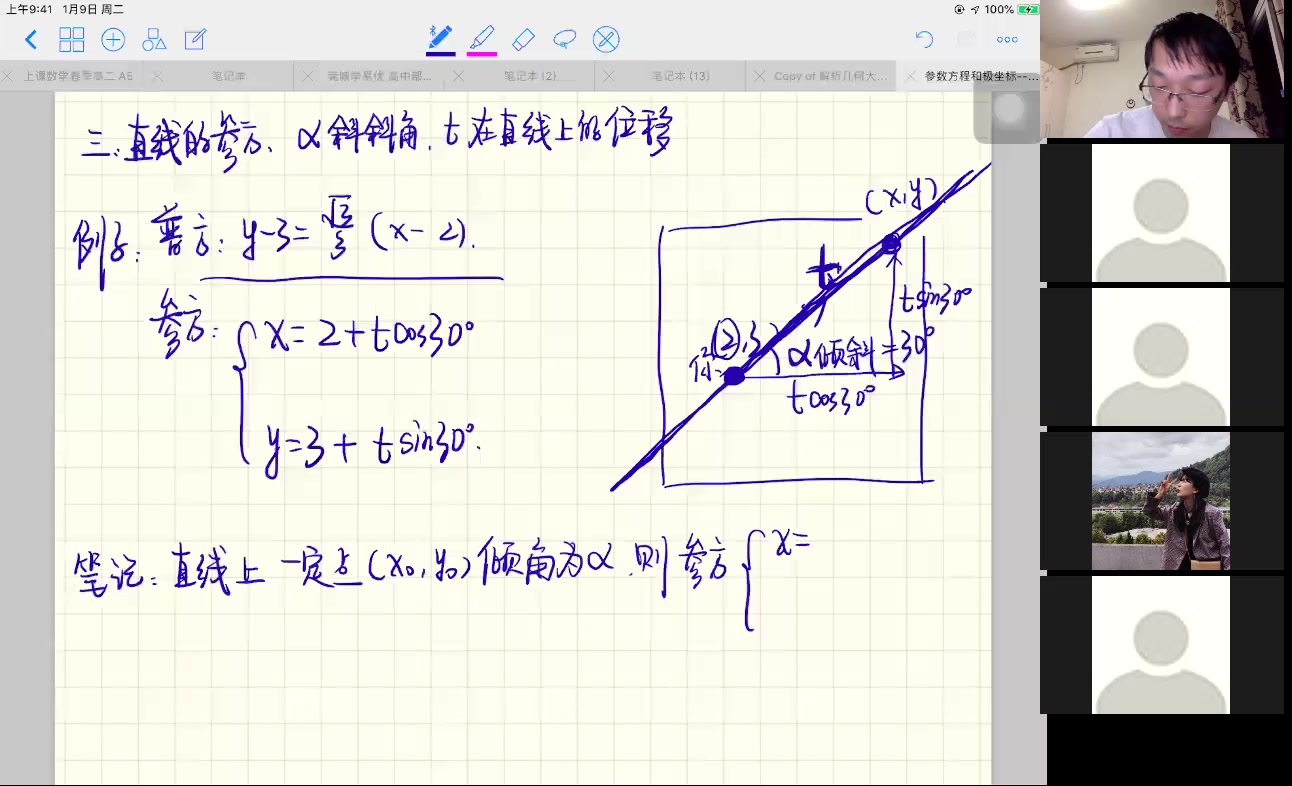 上午9:41 1月9日 周二
100%
上课数学春季高二 A5
笔记本
笔记本 (2)
笔记本 (13)
Copy of 解析几何大...
参数方程和极坐标--...
三.直线的参方、α斜斜角.t在直线上的位移
例子：普方：y-3=√3/3 (x-2).
参方：{x=2+tcos30°
y=3+tsin30°.
(x,y)
t
tsin30°
(2,3)
α倾斜=30°
tcos30°
笔记：直线上一定点(x₀,y₀)倾角为α.则参方{x=